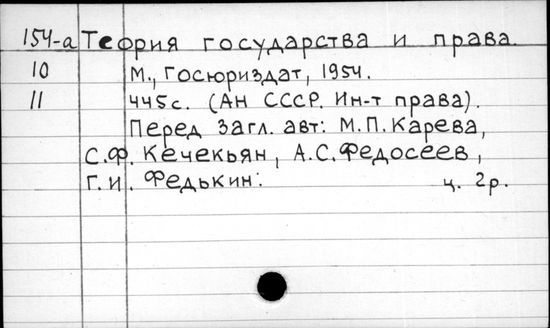 154-а Теория государства и права.
10 М., Госюриздат, 1954.
11 445с. (АН СССР. Ин-т права).
Перед загл. авт: М.П.Карева,
С.Ф. Кечекьян, А.С.Федосеев,
Г.И. Федькин. ц. 2р.